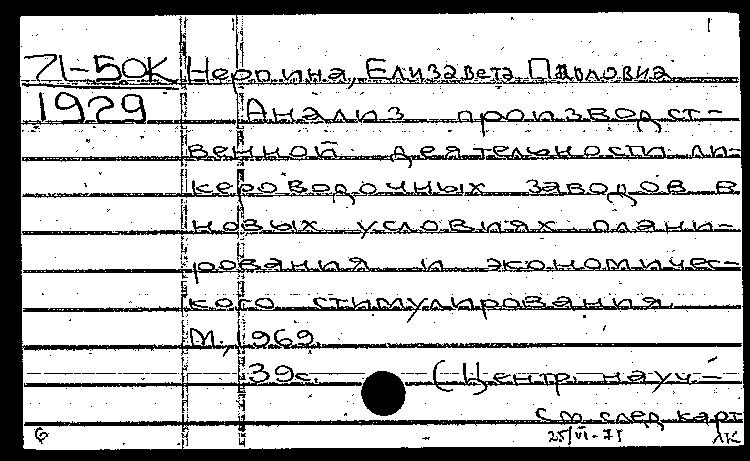 71-50К Нерпина, Елизавета Павловна
1929 Анализ производст-
венной деятельности ли-
кероводочных заводов в
новых условиях плани-
рования и экономичес-
кого стимулирования.
М., 1969.
39с. (Центр. науч-
См. след. карт
6 25/VI-71 ЛК